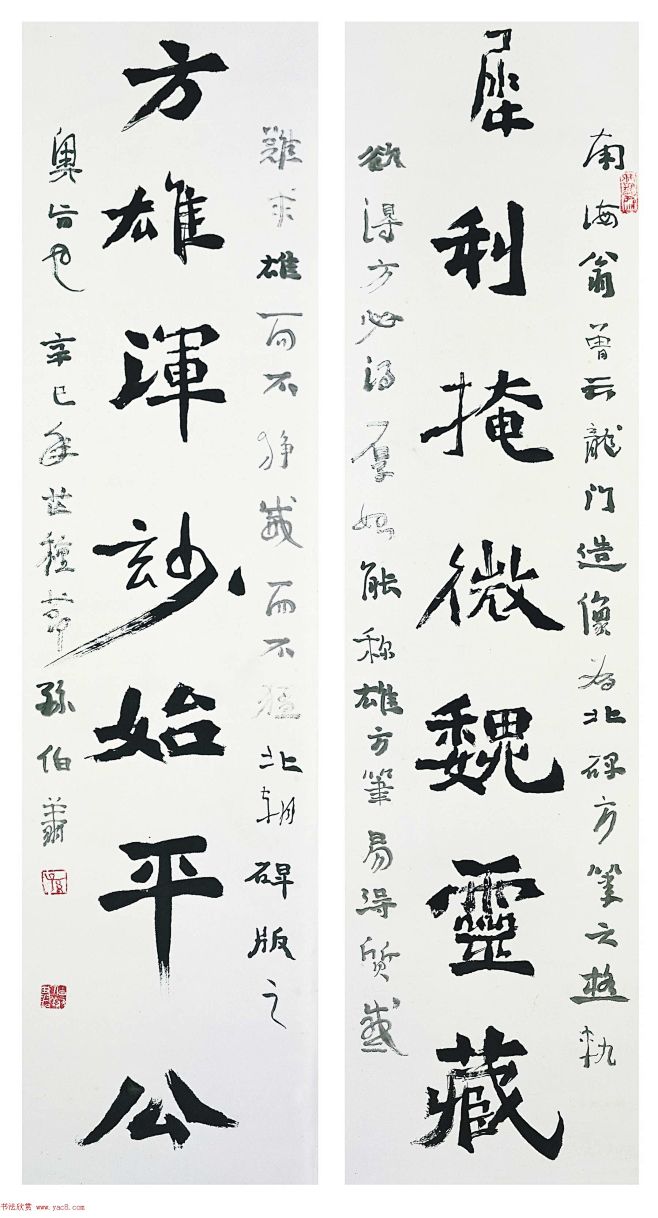 南海翁曾云龍门造像为北碑方筆之極軌
犀利掩微魏靈藏
欲得方必得厚始能称雄方筆易得質感
難求雄而不狰威而不猛北朝碑版之
方雄渾玅始平公
奥旨也 辛巳年芒種節 孫伯翔
书法欣赏 www.yac8.com